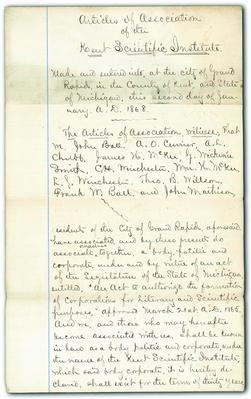 Articles of Association
of the
Kent Scientific Institute.
Made and entered into, at the city of Grand
Rapids in the County of Kent, and State
of Michigan, this second day of Jan-
uary. A.D. 1868.
The Articles of Association, witness, that
we, John Ball, A. O. Currier, A. L.
Chubb, James H. McKee,
Smith, C. H. Winchester, Wm. H. McKee,
L. J. Winchester, Theo. B. Willson,
Frank W. Ball and John Mathison,
residents of the City of Grand Rapids, aforesaid,
have associated, and by these presents do
associate ourselves together, a body politic and
corporate, under and by virtue of an act
of the Legislature of the State of Michigan
entitled, "An Act to authorize the formation
of Corporations for Literary and Scientific
purposes," approved March
And we, and those who may hereafter
become associated with us, shall be known
in law as a body politic and corporate, under
the name of the Kent Scientific Institute,
which said body corporate, it is hereby de-
clared, shall exist for the term of thirty years